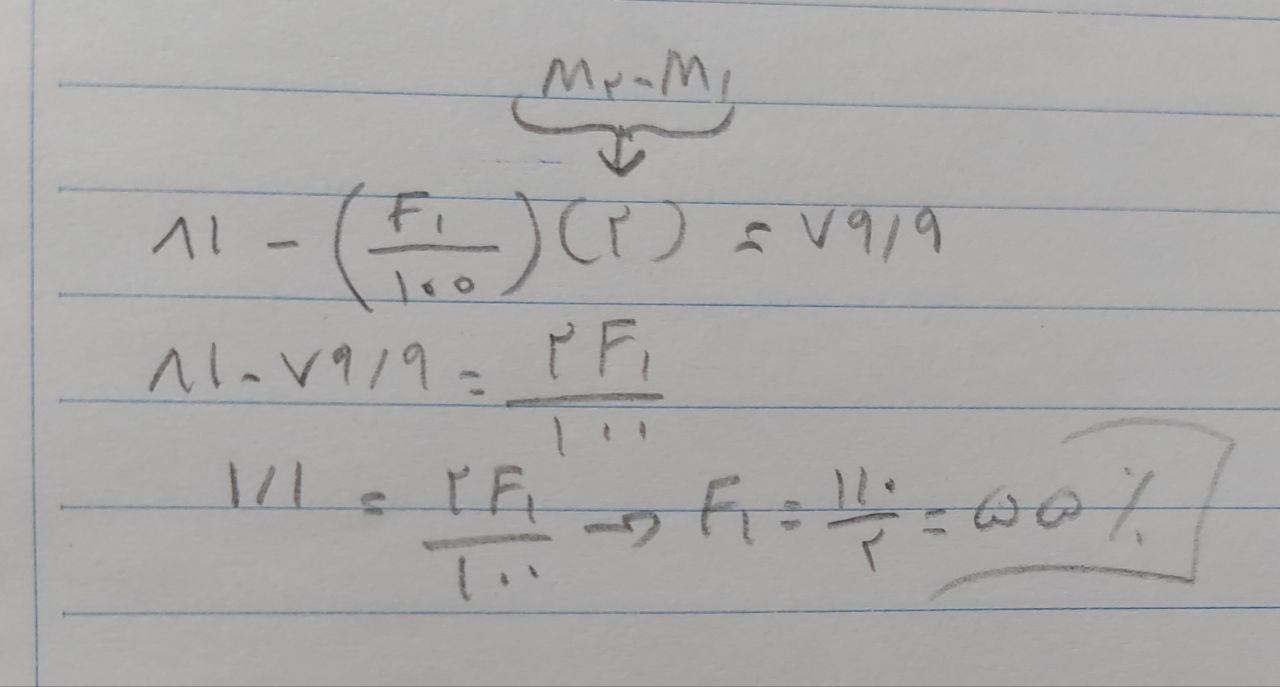 M₂-M₁
۸۱ - (F₁/۱۰۰)(۲) = ۷۹/۹
۸۱-۷۹/۹ = ۲F₁/۱۰۰
۱/۱ = ۲F₁/۱۰۰ → F₁ = ۱۱۰/۲ = ۵۵٪